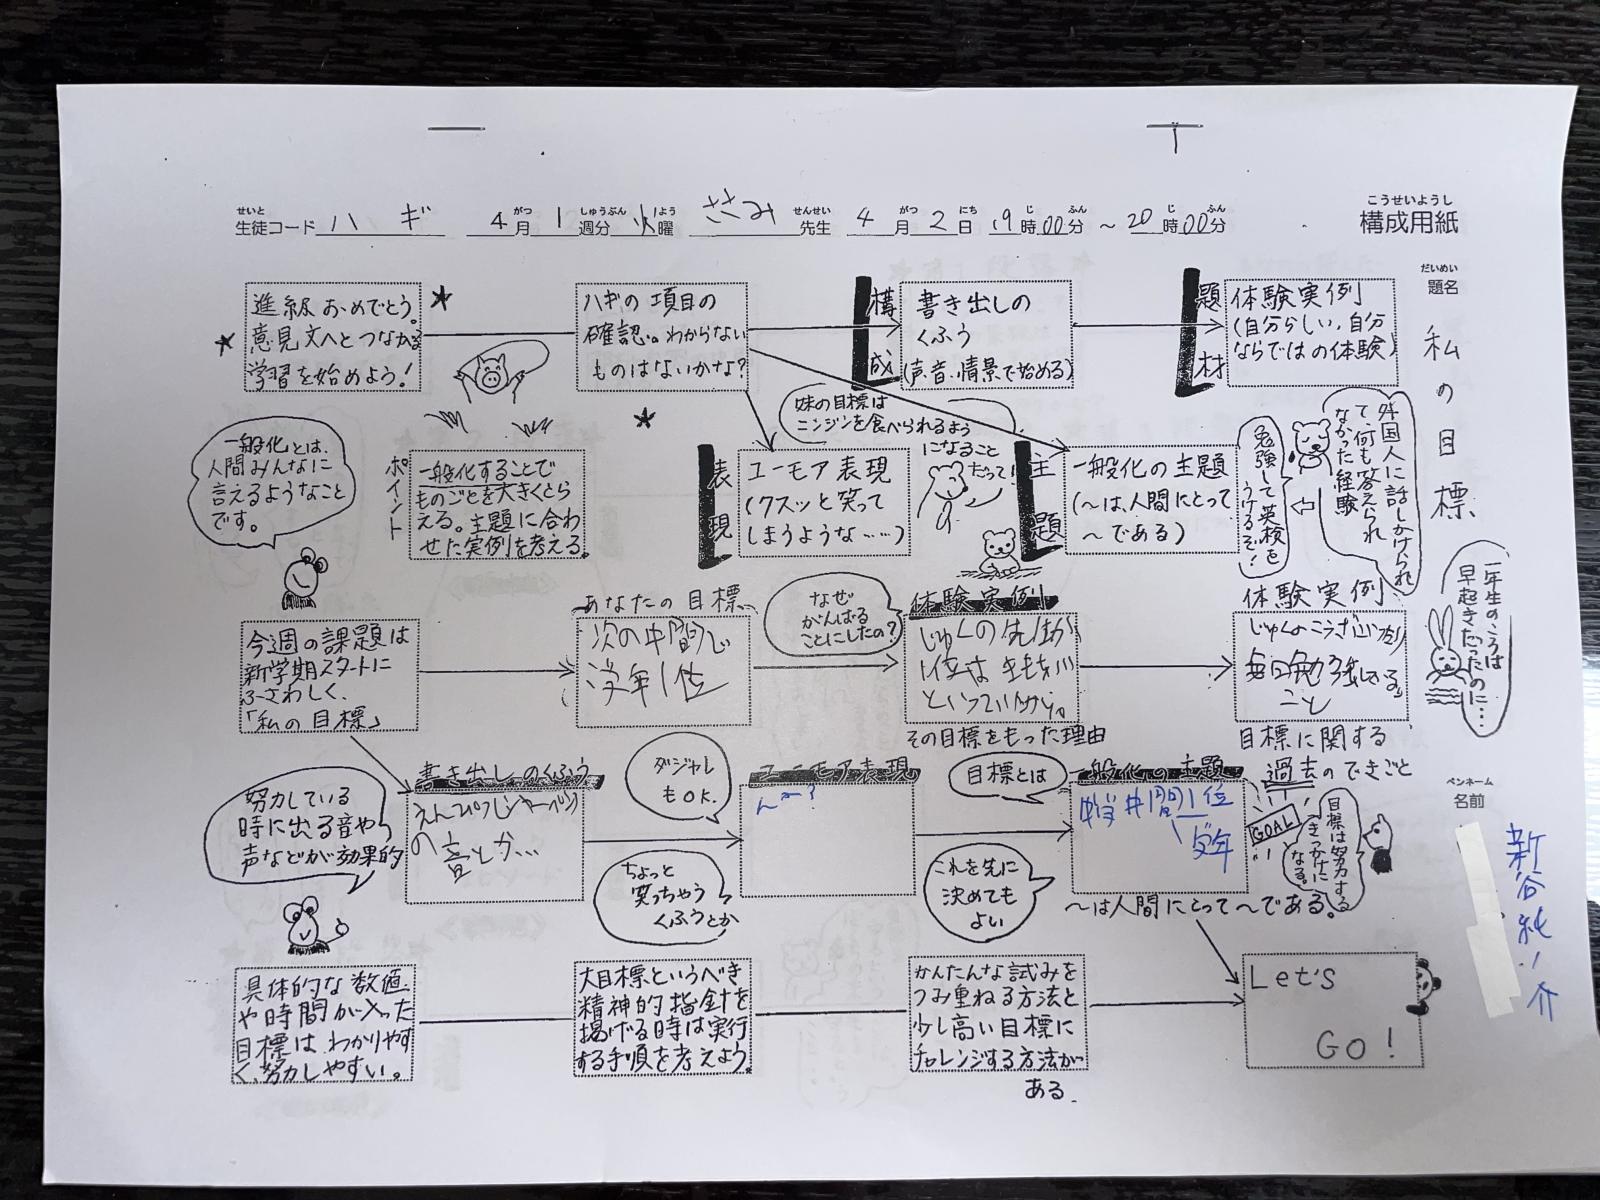 こうせいようし
構成用紙
せいと
生徒コード ハギ
4月 1週分 火曜
がつ しゅうぶん よう
ささみ 先生
せんせい
4月 2日 19時00分 ～ 20時00分
がつ にち じ ふん じ ふん
だいめい
題名
私の目標
進級おめでとう。
意見文へとつながる
学習を始めよう！
ハギの項目の
確認。わからない
ものはないかな？
構成
書き出しの
くふう
(声・音・情景で始める)
題材
体験実例
(自分らしい、自分
ならではの体験)
一般化とは、
人間みんなに
言えるようなこと
です。
ポイント
一般化することで
ものごとを大きくとら
える。主題に合わ
せた実例を考える。
表現
ユーモア表現
(クスッと笑って
しまうような……)
妹の目標は
ニンジンを食べられるよう
になること
だって！
主題
一般化の主題
(～は、人間にとって
～である)
外国人に話しかけられ
て、何も答えられ
なかった経験
⇦
勉強して英検を
うけるぞ！
今週の課題は
新学期スタートに
ふさわしく、
「私の目標」
あなたの目標
次の中間で
学年1位
なぜ
がんばる
ことにしたの？
体験実例
じゅくの先生が
1位は気持ちいい
といっていたから。
その目標をもった理由
体験実例
毎日勉強している
こと
目標に関する
過去のできごと
一年生のころは
早起きだったのに…
努力している
時に出る音や
声などが効果的
書き出しのくふう
えんぴつ
の音とか…
ダジャレ
もOK.
ちょっと
笑っちゃう
くふうとか
ユーモア表現
ん〜？
目標とは
これを先に
決めても
よい
一般化の主題
中間1位
学年
～は人間にとって～である。
GOAL
目標は努力する
きっかけに
なる。
ペンネーム
名前
新谷純ノ介
具体的な数値
や時間が入った
目標は、わかりやす
く、努力しやすい。
大目標というべき
精神的指針を
掲げる時は実行
する手順を考えよう。
かんたんな試みを
つみ重ねる方法と
少し高い目標に
チャレンジする方法が
ある.
Let's
GO！